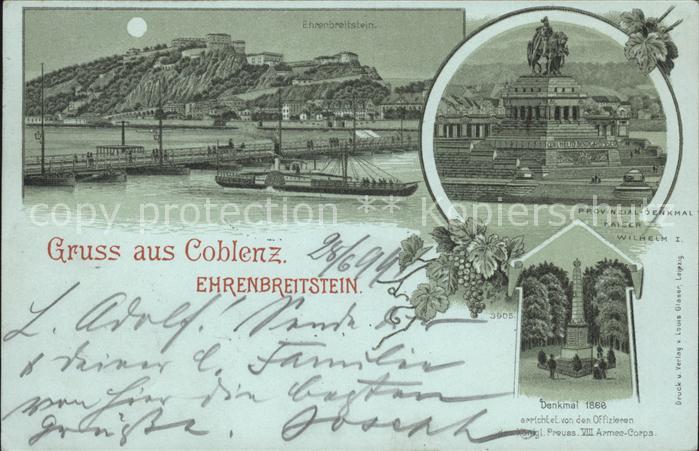 Ehrenbreitstein.
PROVINZIAL-DENKMAL
KAISER
WILHELM I.
copy protection · Kopierschutz
Gruss aus Coblenz.
28/6 99
EHRENBREITSTEIN.
3905.
L. Adolf! Sende Dir
& deiner l. Familie
von hier die besten
Grüße. Joseph
Denkmal 1866
errichtet von den Offizieren
Königl. Preuss. VIII Armee-Corps.
Druck u. Verlag v. Louis Glaser, Leipzig.